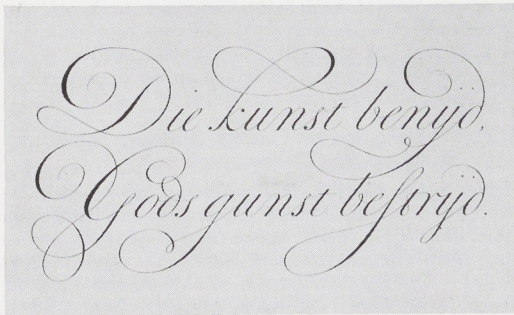 Die kunst benÿd,
Gods gunst beſtrÿd.